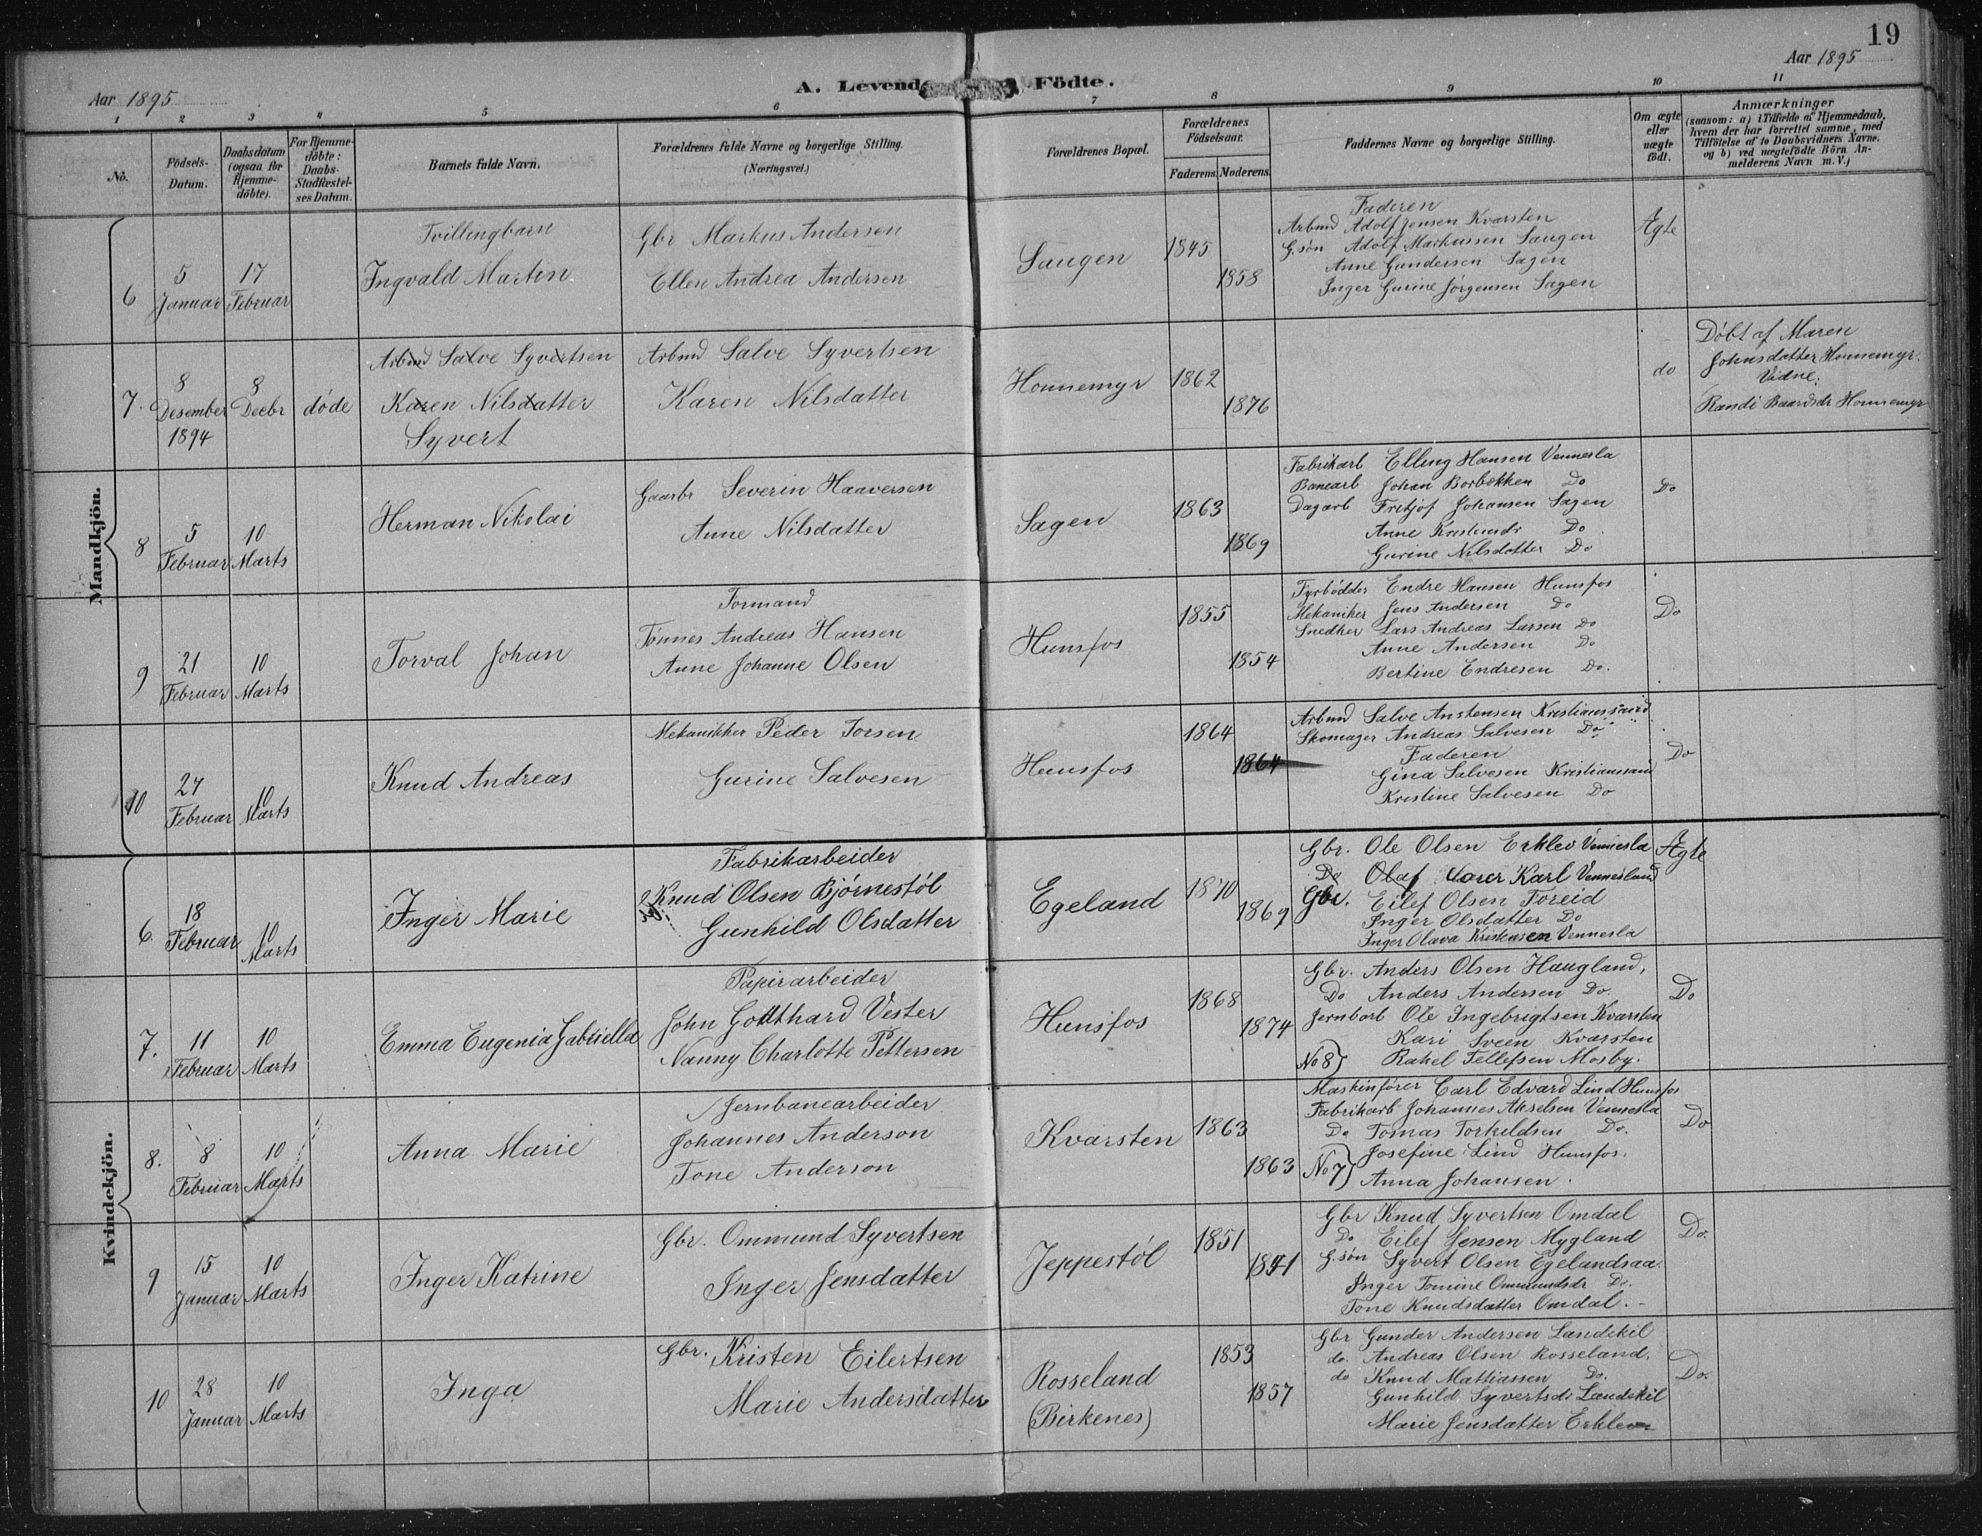 19
Aar 1895
A. Levende Födte.
Aar 1895
1 2 3 4 5 6 7 8 9 10 11
No.
Födsels-Datum.
Daabsdatum (ogsaa for Hjemmedöbte).
For Hjemmedöbte: Daabs-Stadfæstelses Datum.
Barnets fulde Navn.
Forældrenes fulde Navne og borgerlige Stilling.
(Næringsvei.)
Forældrenes Bopæl.
Forældrenes Födselsaar.
Faderens. Moderens.
Faddernes Navne og borgerlige Stilling.
Om ægte eller uægte födt.
Anmærkninger
(saasom: a) i Tilfælde af Hjemmedaab, hvem der har forrettet samme, med Tilföielse af to Daabsvidners Navne, og b) ved uægtefödte Börn Anmelderens Navn m. V.)
Mandkjön.
6
5 Januar
17 Februar
Tvillingbarn
Ingvald Martin
Gbr Markus Andersen
Ellen Andrea Andersen
Saugen
1845
1858
Faderen
Arbmd Adolf Jensen Kvarsten
G.søn Adolf Markussen Saugen
Anne Gundersen Sagen
Inger Gurine Jørgensen Sagen
Ægte
7.
8 Desember 1894
8 Decbr
døde
Arbmd Salve Syvertsen
Karen Nilsdatter
Syvert
Arbmd Salve Syvertsen
Karen Nilsdatter
Honnemyr
1862
1876
do
Døbt af Maren
Johnsdatter Honnemyr.
Vidne:
Randi Baardsdr Honnemyr
8
5 Februar
10 Marts
Herman Nikolai
Gaarbr Severin Haaversen
Anne Nilsdatter
Sagen
1863
1869
Fabrikarb Elling Hansen Vennesla
Banearb Johan Borbækken Do
Dagarb Fritjof Johansen Sagen
Anne Kristensdr Do
Gurine Nilsdatter Do
Do
9
21 Februar
10 Marts
Torval Johan
Formand
Tønnes Andreas Hansen
Anne Johanne Olsen
Hunsfos
1855
1854
Fyrbødder Endre Hansen Hunsfos
Mekaniker Jens Andersen Do
Snedker Lars Andreas Larsen Do
Anne Andersen Do
Bertine Endresen Do.
Do
10
27 Februar
10 Marts
Knud Andreas
Mekanikker Peder Torsen
Gurine Salvesen
Hunsfos
1864
1864
Arbmd Salve Anstensen Kristianssand
Skomager Andreas Salvesen Do
Faderen
Gina Salvesen Kristianssand
Kristine Salvesen Do
Do
Kvindekjön.
6
18 Februar
10 Marts
Inger Marie
Fabrikarbeider
Knud Olsen Bjørnestøl
Gunhild Olsdatter
Egeland
1870
1869
Gbr. Ole Olsen Erklev Vennesla
Do Olaf Karl Vennesland
Gbr. Eilef Olsen Foreid
Inger Olsdatter Do
Inger Olava Kristensen Vennesla
Ægte
7.
11 Februar
10 Marts
Emma Eugenia Gabriella
Papirarbeider
John Gotthard Vester
Nanny Charlotte Pettersen
Hunsfos
1868
1874
Gbr. Anders Olsen Haugland,
Do Anders Andersen Do.
Jernbarb Ole Ingebrigtsen Kvarsten
Kari Sveen Kvarsten
No 8) Rakel Tellefsen Mosby.
Do
8.
8 Februar
10 Marts
Anna Marie
Jernbanearbeider
Johannes Anderson
Tone Anderson
Kvarsten
1863
1863
Maskinfører Carl Edvard Lind Hunsfos
Fabrikarb Johannes Akselsen Vennesla
Do Tomas Torkeldsen Do.
Josefine Lind Hunsfos.
No 7) Anna Johansen.
Do
9
15 Januar
10 Marts
Inger Katrine
Gbr. Ommund Syvertsen
Inger Jensdatter
Jeppestøl
1851
Gbr Knud Syvertsen Omdal
Do Eilef Jensen Mygland
G.søn Syvert Olsen Egelandsaa
Inger Tomine Ommundsdr Do.
Tone Knudsdatter Omdal.
Do.
10
28 Januar
10 Marts
Inga
Gbr. Kristen Eilertsen
Marie Andersdatter
Rosseland
(Birkenes)
1853
1857
Gbr Gunder Andersen Landekil
do. Andreas Olsen Rosseland.
do Knud Mattiassen Do.
Gunhild Syvertsdr Landekil
Marie Jensdatter Erklev
Do.